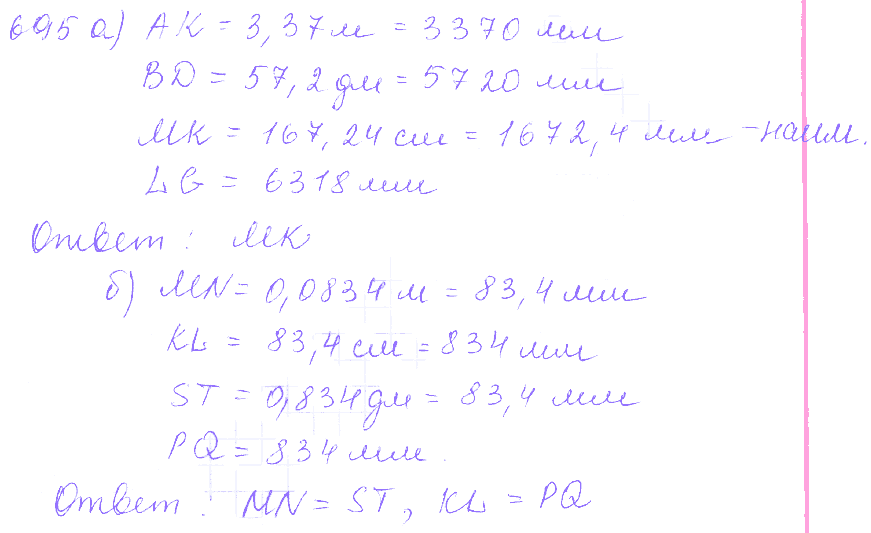 695 а) АК = 3,37 м = 3370 мм
BD = 57,2 дм = 5720 мм
МК = 167,24 см = 1672,4 мм - наим.
LG = 6318 мм
Ответ : МК
б) MN = 0,0834 м = 83,4 мм
KL = 83,4 см = 834 мм
ST = 0,834 дм = 83,4 мм
PQ = 834 мм.
Ответ : MN = ST, KL = PQ